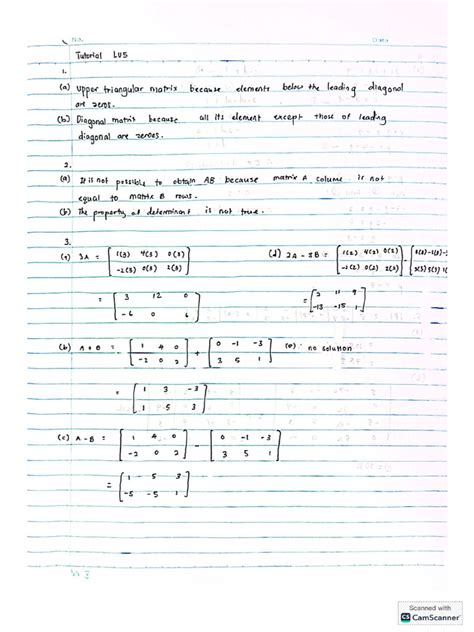 No.
Date
Tutorial LU5
1.
(a) Upper triangular matrix because elements below the leading diagonal
are zeros.
(b) Diagonal matrix because all its element except those of leading
diagonal are zeroes.
2.
(a) It is not possible to obtain AB because matrix A colume is not
equal to matrix B rows.
(b) The property of determinant is not true.
3.
3A = [ 1(3) 4(3) 0(3)
-2(3) 0(3) 2(3) ]
= [ 3 12 0
-6 0 6 ]
(d) 2A - 3B = [ 1(2) 4(2) 0(2)
-2(2) 0(2) 2(2) ] -
= [ 2 11 9
-13 -15 1 ]
(b) A + B = [ 1 4 0
-2 0 2 ] + [ 0 -1 -3
3 5 1 ]
(e) no solution
= [ 1 3 -3
1 5 3 ]
(c) A - B = [ 1 4 0
-2 0 2 ] - [ 0 -1 -3
3 5 1 ]
= [ 1 5 3
-5 -5 1 ]
Scanned with
CS CamScanner